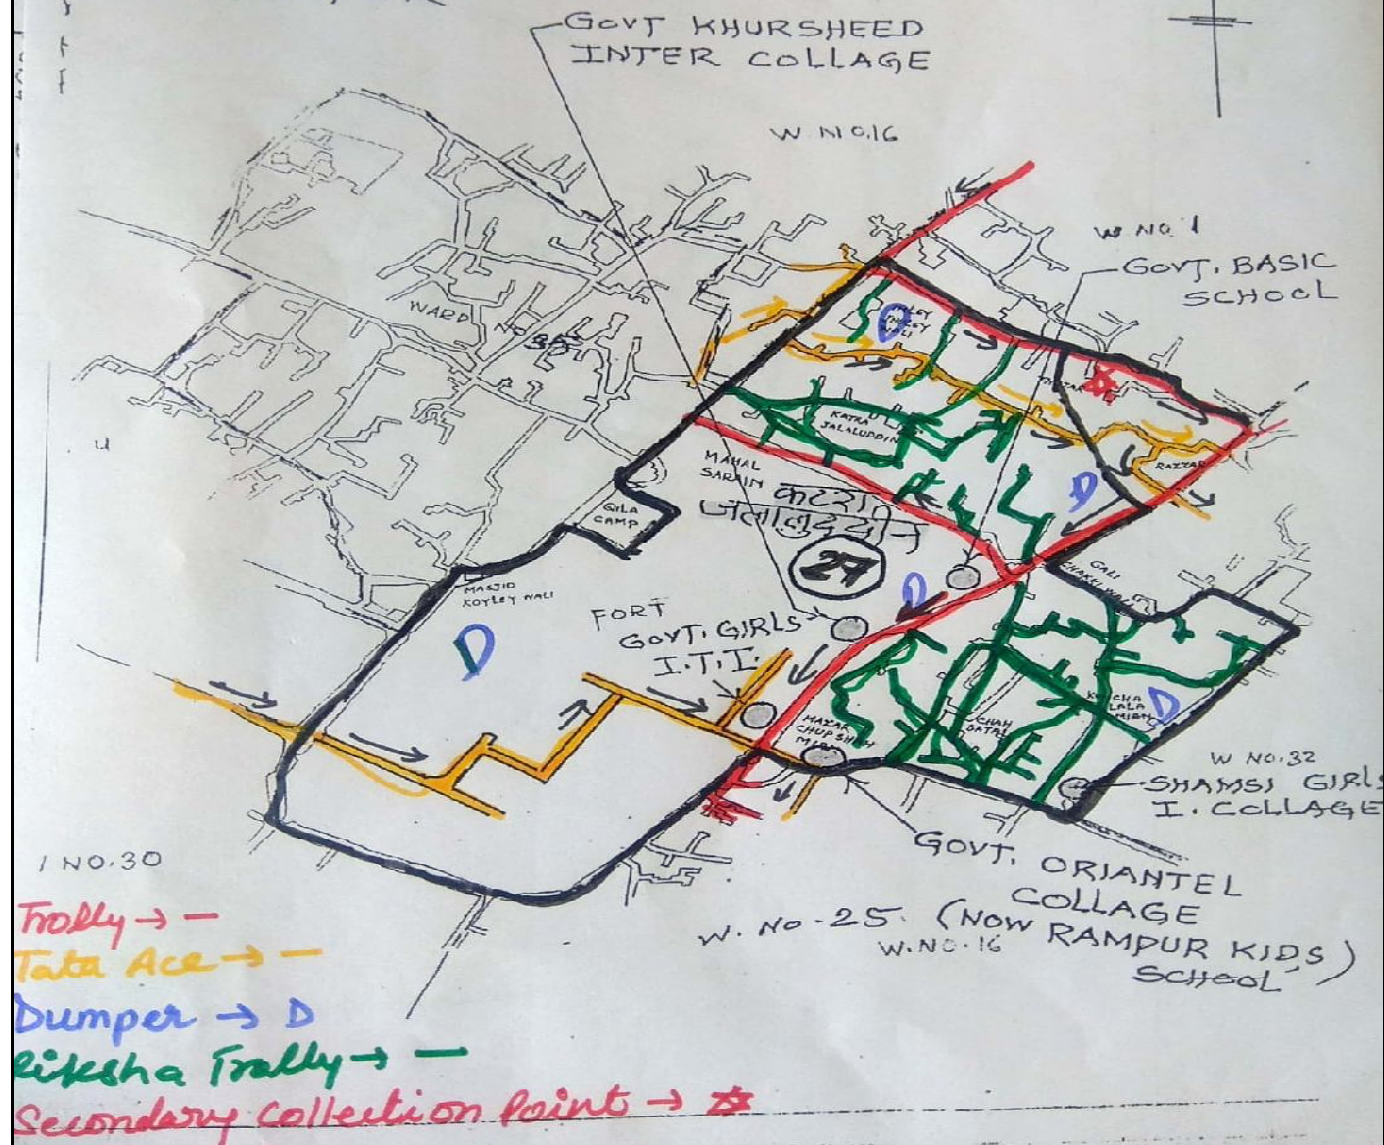 GOVT KHURSHEED
INTER COLLAGE
W NO.16
W NO 1
GOVT. BASIC
SCHOOL
WARD NO
KATRA
JALALUDDIN
RAZZAR
MAHAL
SARAIN
कटरा
जलालुद्दीन
27
QILA
CAMP
MASJID
KOYLEY WALI
FORT
GOVT. GIRLS
I.T.I.
GALI
D
D
D
D
D
KUCHA
LALA
MIAN
CHAH
MAZAR
CHUPSHAH
MIAN
W NO.32
SHAMSI GIRLS
I. COLLAGE
GOVT. ORIANTEL
COLLAGE
(NOW RAMPUR KIDS)
SCHOOL
W. NO-25.
W.NO.16
NO.30
Trolly → —
Tata Ace → —
Dumper → D
Riksha Trolly → —
Secondary Collection Point → ☆